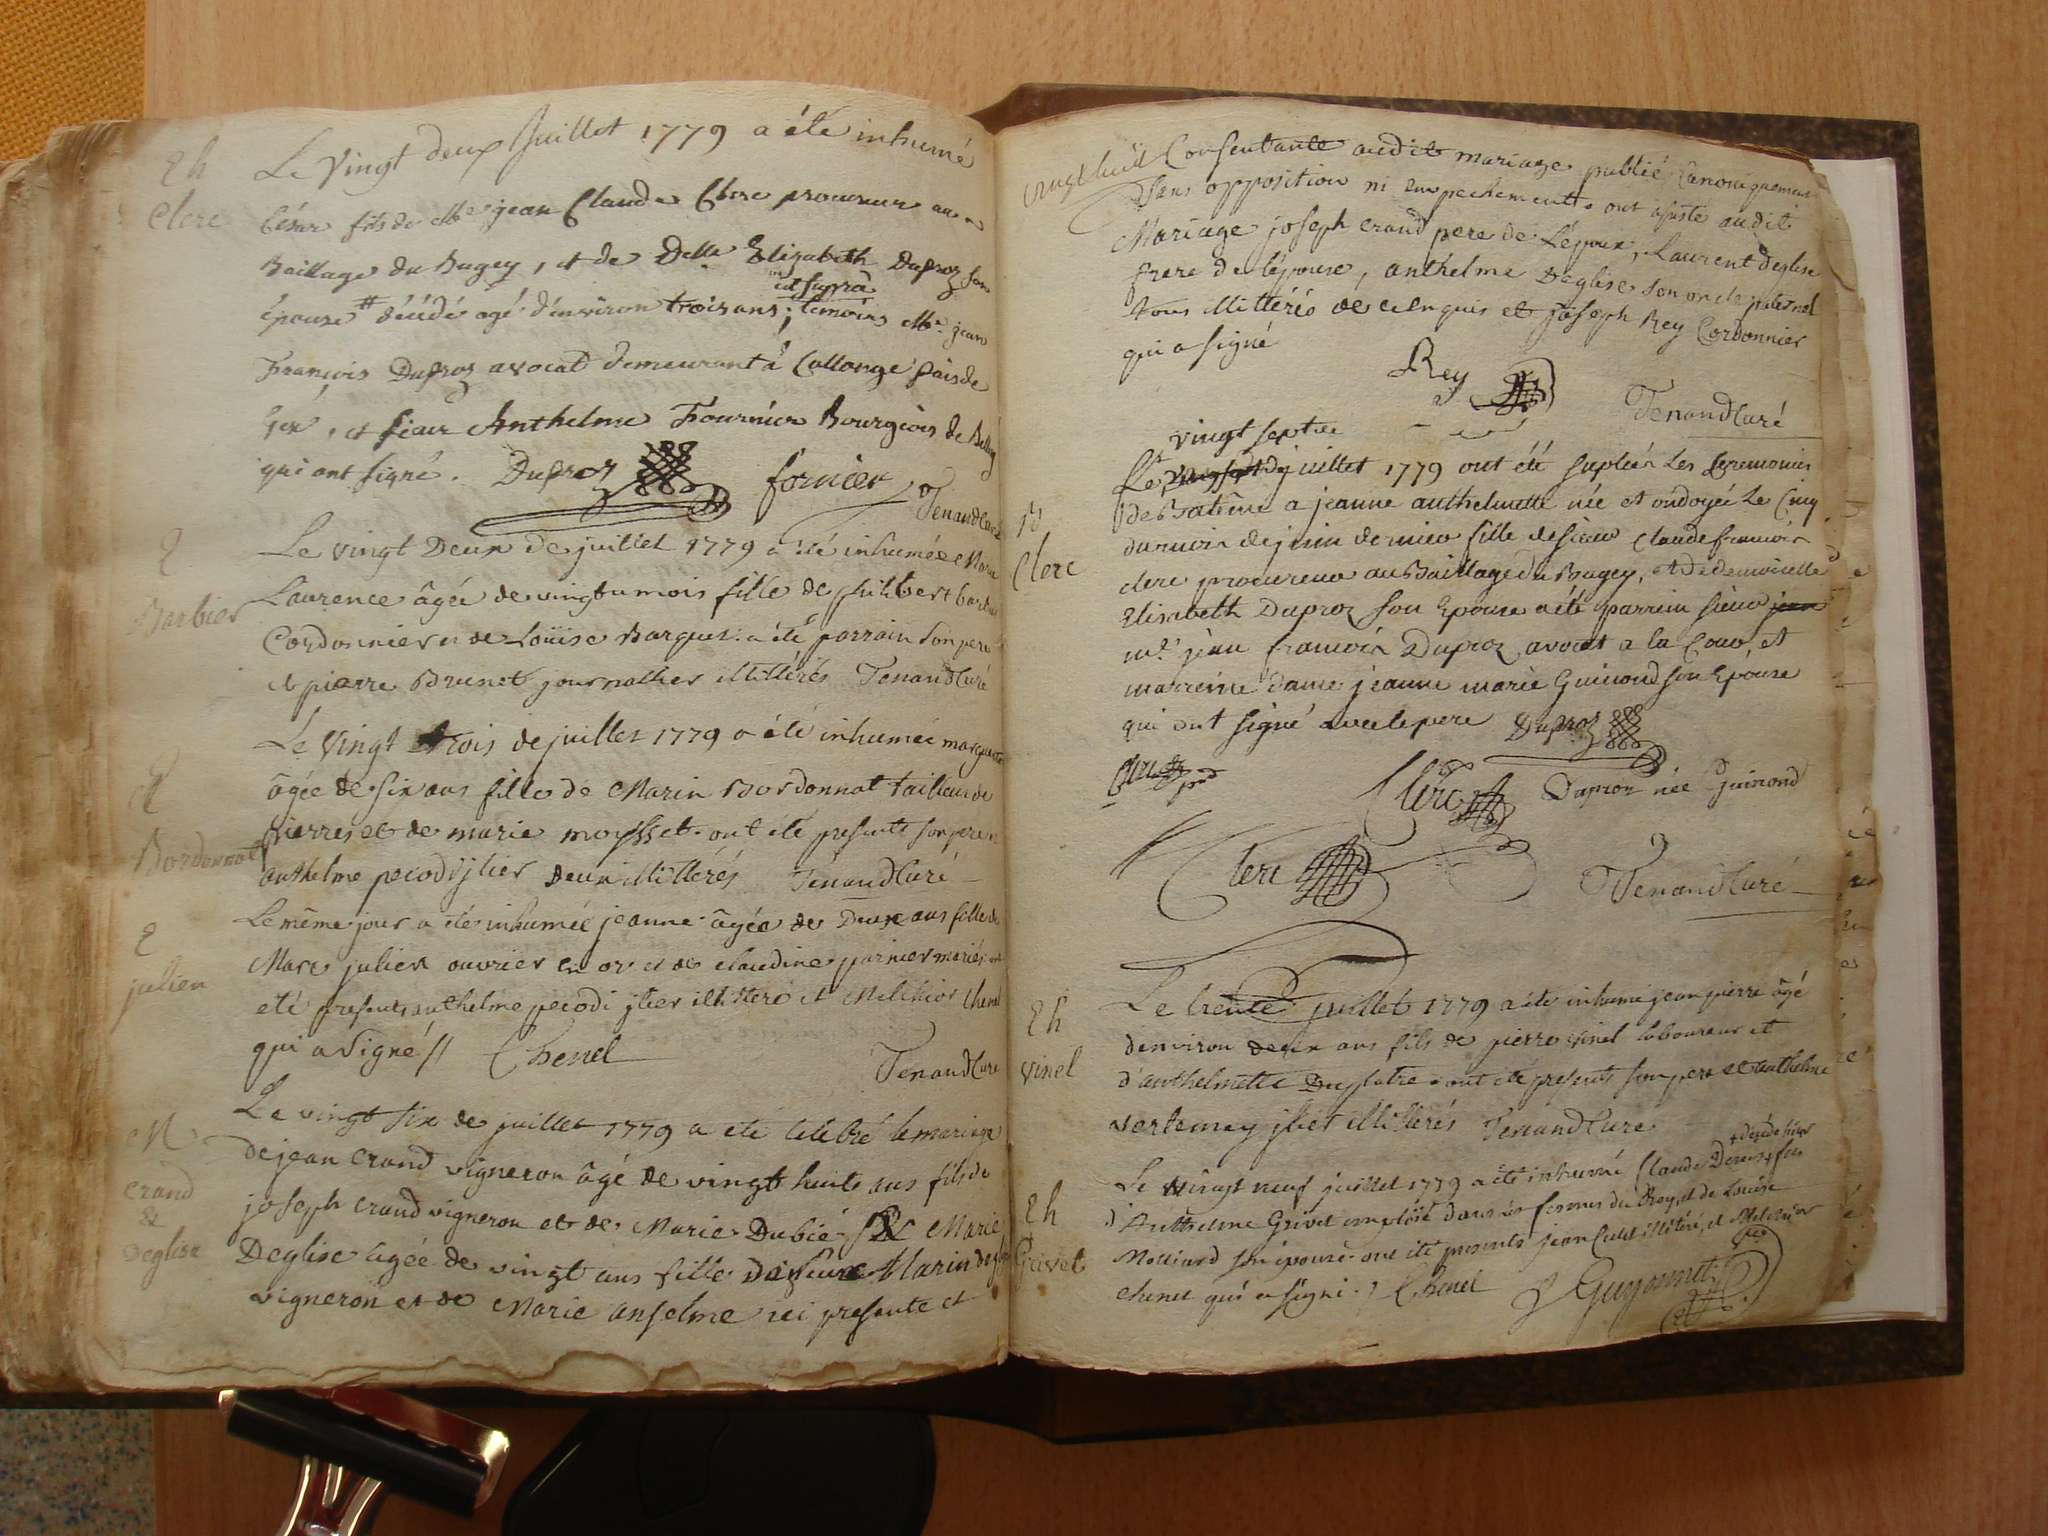 Eh
Clerc
Le vingt deux Juillet 1779 a été inhumé
César fils de Me jean Claude Clerc procureur au
Baillage du Bugey, et de Delle Elizabeth Duproz son
ut suprà
épouse # décédé agé d'environ trois ans; temoins Me jean
François Duproz avocat demeurant à Collonge païs de
Gex, et sieur Anthelme Fournier Bourgeois de Belley
qui ont signé. Duproz fornier Tenand Curé
E
Barbier
Le vingt Deux de juillet 1779 a été inhumée Marie
Laurence âgée de vingt un mois fille de philibert barbier
Cordonnier et de Loüise Barquet: a été parrain son pere
et pierre Brunet journallier illittérés Tenand Curé
E
Bordonnat
Le vingt trois de juillet 1779 a été inhumée marguerite
âgée de six ans fille de Marin Bordonnat tailleur de
pierres et de marie moysset. ont été presents son pere et
anthelme pecodi jlier deux illittérés Tenand Curé
E
julien
Le même jour a été inhumée jeanne âgée de Deux ans fille de
Marc julien ouvrier en or et de claudine parnier mariés ont
eté presents anthelme pecodi jlier illitteré et Melchior Chenel
qui a signé // Chenel Tenand Curé
M
Crand
&
Deglise
Le vingt six de juillet 1779 a été célébré le mariage
de jean Crand vigneron âgé de vingt huit ans fils de
joseph Crand vigneron et de Marie Dubié et Marie
Deglise agée de vingt ans fille de feu Marin deglise
vigneron et de Marie anselme ici presente et
vingt huit Consentante audit mariage publié Canoniquement
sans opposition ni empechement. ont assisté audit
Mariage joseph crand pere de l'époux, Laurent deglise
frere de l'épouse, anthelme Deglise son oncle paternel
tous illittérés de ce enquis et joseph Rey Cordonnier
qui a signé
Rey Tenand Curé
vingt sept de
Bt
Clerc
Le juillet 1779 ont été suplées Les ceremonies
de Batême a jeanne anthelmette née et ondoyée Le Cinq
du mois de juin dernier fille de sieur claude francois
clerc procureur au Baillage du Bugey, et de demoiselle
Elisabeth Duproz son Epouse a été parrein sieur jean
mre jean francois Duproz avocat a la Cour, et
marreine dame jeanne marie Guinond son Epouse
qui ont signé avec le pere Duproz
Clerc Duproz née Guinond
Clerc Tenand Curé
Eh
vinel
Le trente juillet 1779 a été inhumé jean pierre âgé
d'environ deux ans fils de pierre vinel laboureur et
d'anthelmette Duplatre. ont été presents son pere et anthelme
vertemey jlier illittérés Tenand Curé
Eh
Grivet
+ décédé hier
Le vingt neuf juillet 1779 a été inhumé Claude Denis + fils
d'Anthelme Grivet employé dans les fermes du Roy, et de Louise
Molliard son épouse. ont été presents jean Cullet illitéré, et Melchior
chenel qui a signé. Chenel Guyonnet